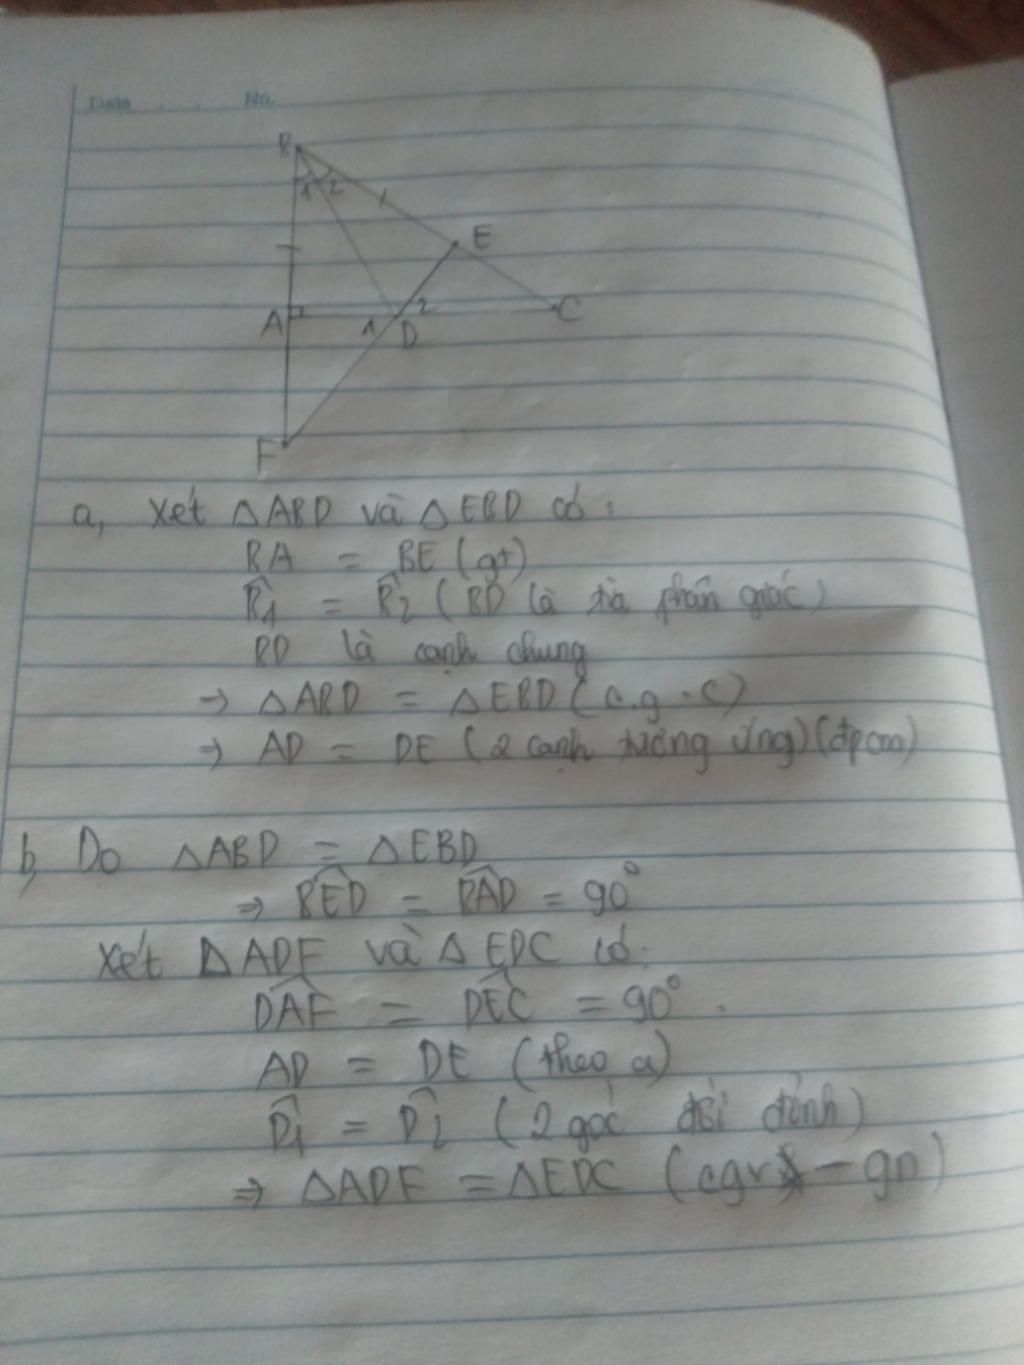 Date No.
B
1 2
E
A
1 D 2
C
F
a, Xét △ABD và △EBD có:
BA = BE (gt)
B̂1 = B̂2 (BD là tia phân giác)
BD là cạnh chung
→ △ABD = △EBD (c.g.c)
→ AD = DE (2 cạnh tương ứng) (đpcm)
b, Do △ABD = △EBD
⇒ BÊD = BÂD = 90°
Xét △ADF và △EDC có:
DÂF = DÊC = 90°.
AD = DE (theo a)
D̂1 = D̂2 (2 góc đối đỉnh)
⇒ △ADF = △EDC (cgv - gn)